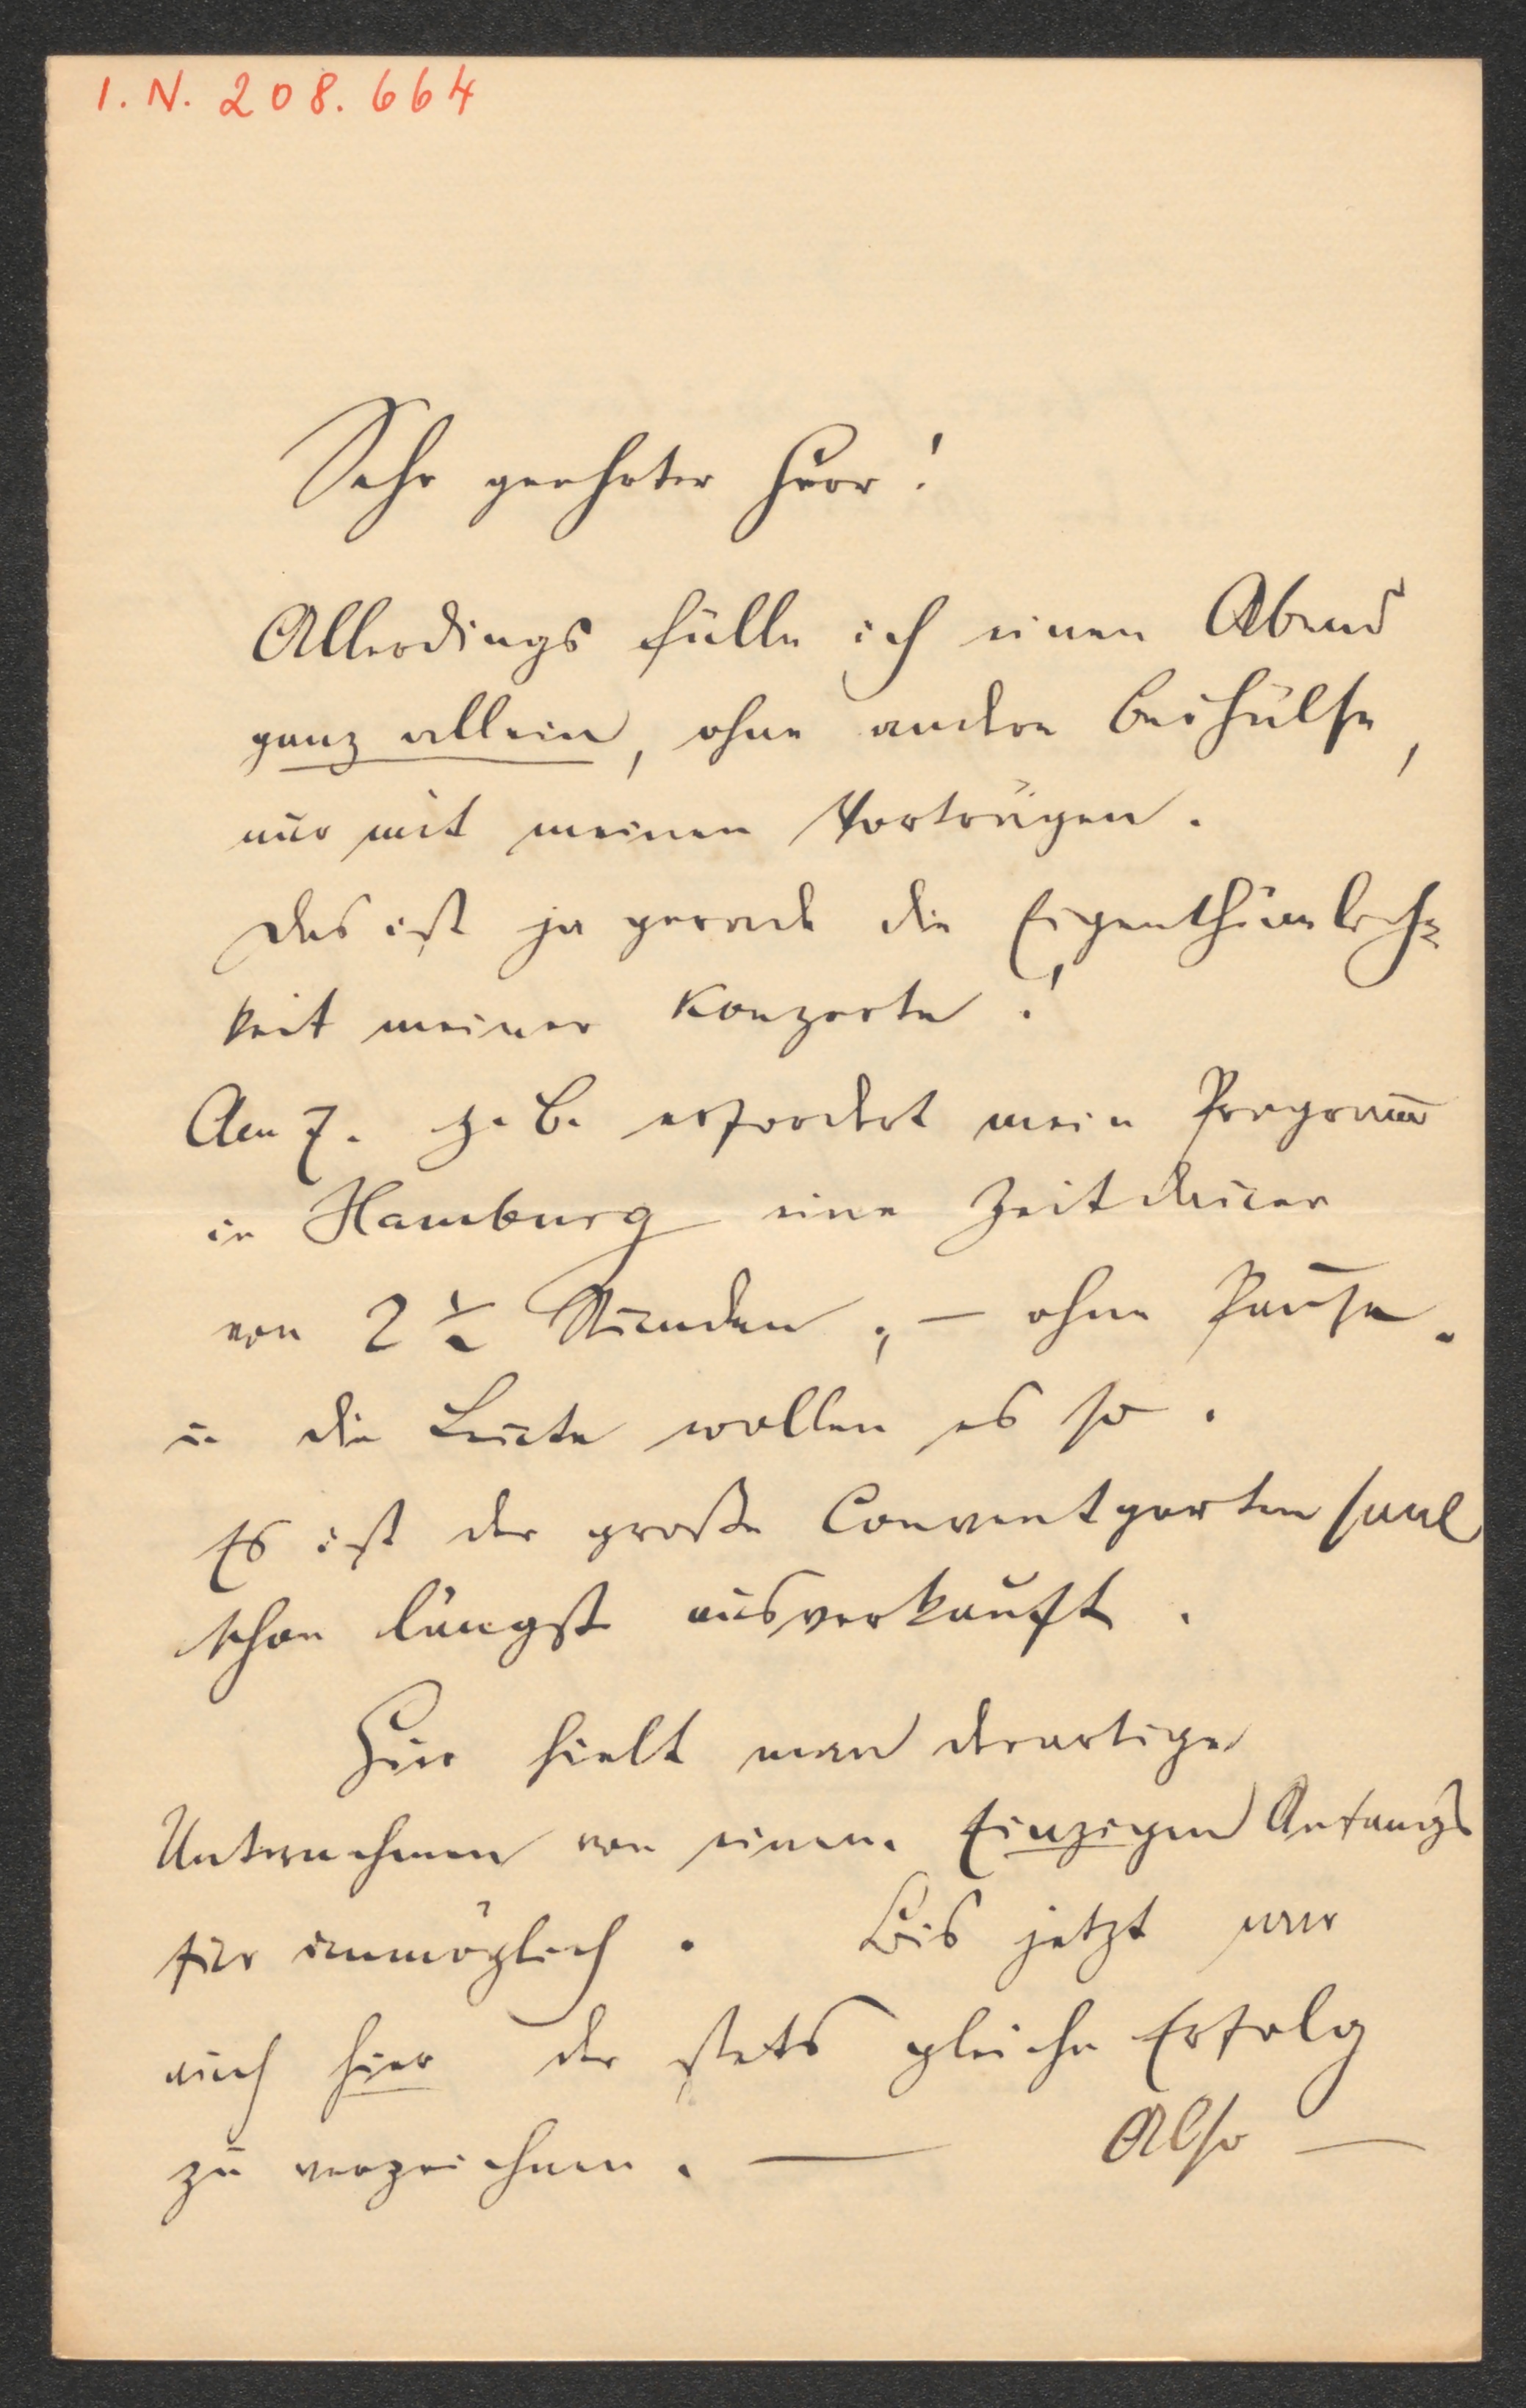 I. N. 208.664
Sehr geehrter Herr!
Allerdings fülle ich einen Abend
ganz allein, ohne andre Beihülfe,
nur mit meinen Vorträgen.
Das ist ja gerade die Eigenthümlich=
keit meiner Konzerte!
Am 7. z. B. erfordert mein Programm̅
in Hamburg eine Zeitdauer
von 2 ½ Stunden; – ohne Pause.
u. die Leute wollen es so.
Es ist der große Conventgarten saal
schon längst ausverkauft.
Hier hielt man derartige
Unternehmen von einem Einzigen Anfangs
für unmöglich. Bis jetzt war
auch hier der stets gleiche Erfolg
zu verzeichnen. — Also —